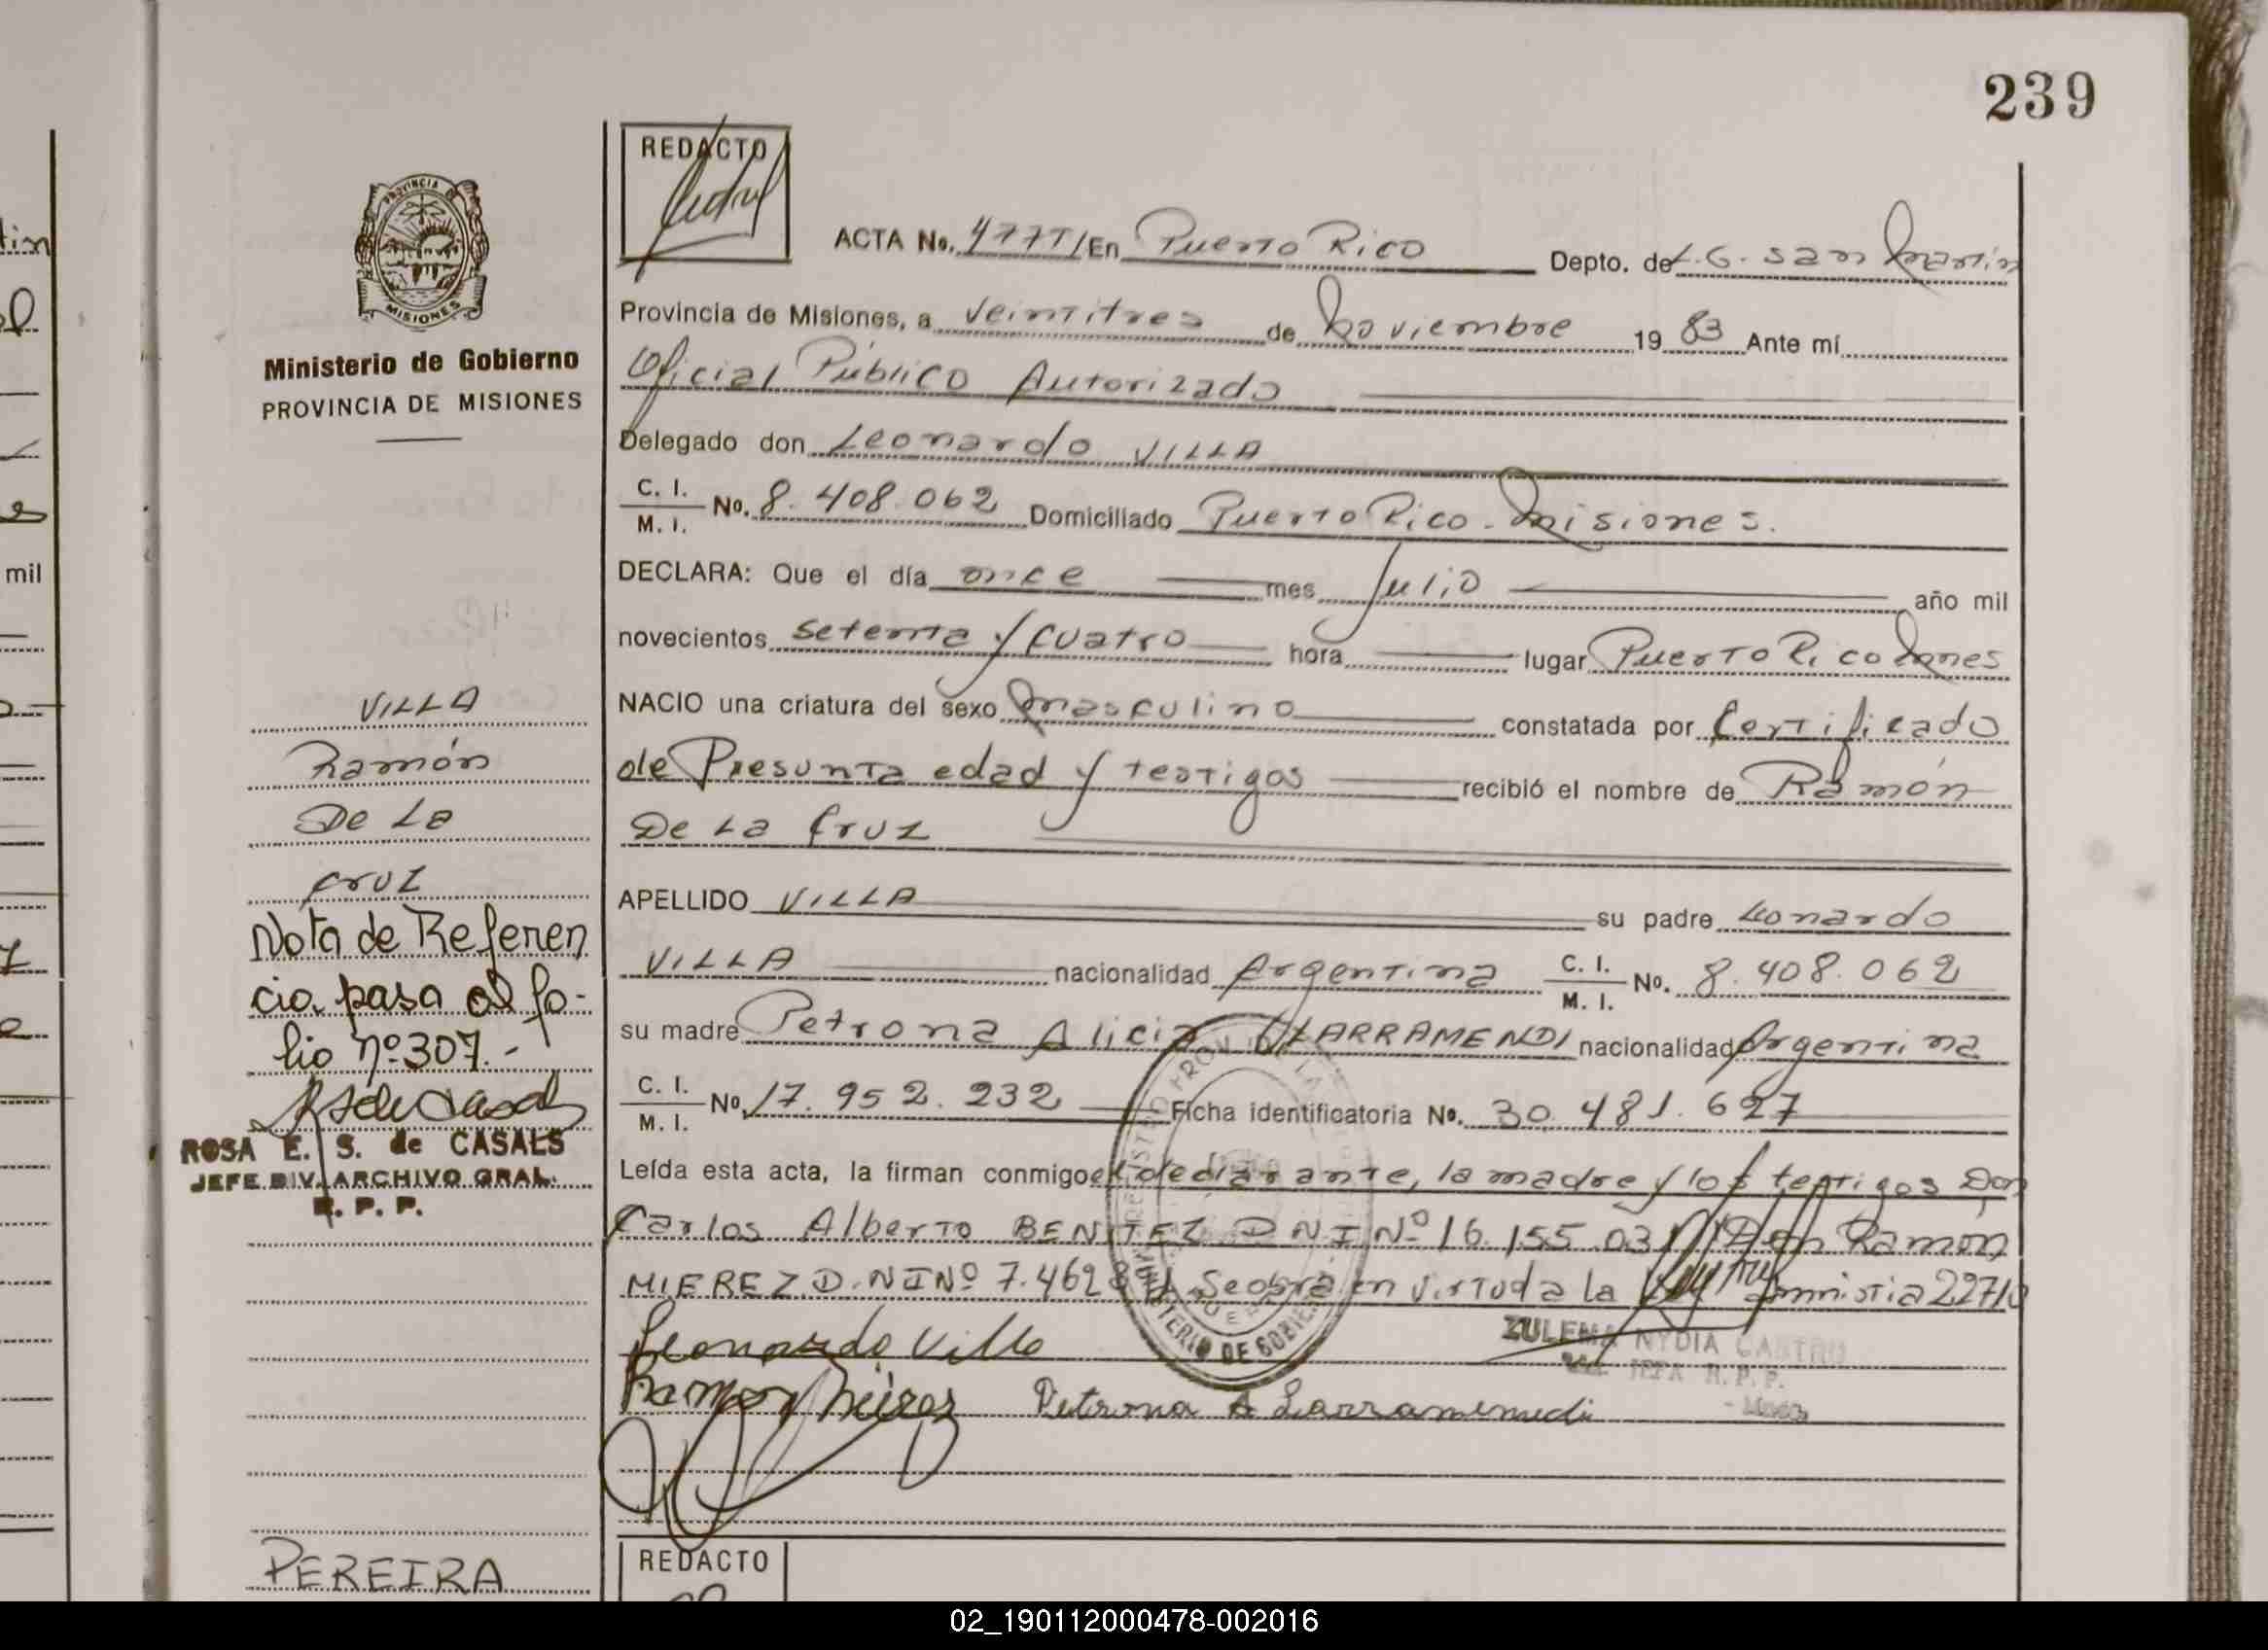 239
REDACTO
ACTA No. 477T/En Puerto Rico Depto. de L. G. San Martin
Provincia de Misiones, a veintitres de Noviembre 19 83 Ante mí
Oficial Público Autorizado
Delegado don Leonardo VILLA
C. I.
M. I.
No. 8.408.062 Domiciliado Puerto Rico - Misiones.
DECLARA: Que el día once mes Julio año mil
novecientos setenta y cuatro hora lugar Puerto Rico Mnes
NACIO una criatura del sexo masculino constatada por Certificado
de Presunta edad y testigos recibió el nombre de Ramón
De La Cruz
APELLIDO VILLA su padre Leonardo
VILLA nacionalidad Argentina C. I. M. I. No. 8.408.062
su madre Petrona Alicia LARRAMENDI nacionalidad Argentina
C. I.
M. I.
No. 17.952.232 Ficha identificatoria No. 30.481.627
Leída esta acta, la firman conmigo el declarante, la madre y los testigos Don
Carlos Alberto BENITEZ D N I Nº 16.155.031 Don Ramón
MIEREZ D.NI Nº 7.462 Se obra en virtud a la Ley Amnistia 22710
Leonardo Villa
Ramon Mierez Petrona A Larramemedi
ZULEMA NYDIA CASTRO
JEFA R. P. P.
REDACTO
PROVINCIA DE
MISIONES
Ministerio de Gobierno
PROVINCIA DE MISIONES
VILLA
Ramón
De La
Cruz
Nota de Referen
cia pasa al fo-
lio nº 307.-
ROSA E. S. de CASALS
JEFE DIV. ARCHIVO GRAL.
R. P. P.
PEREIRA
mil
02_190112000478-002016